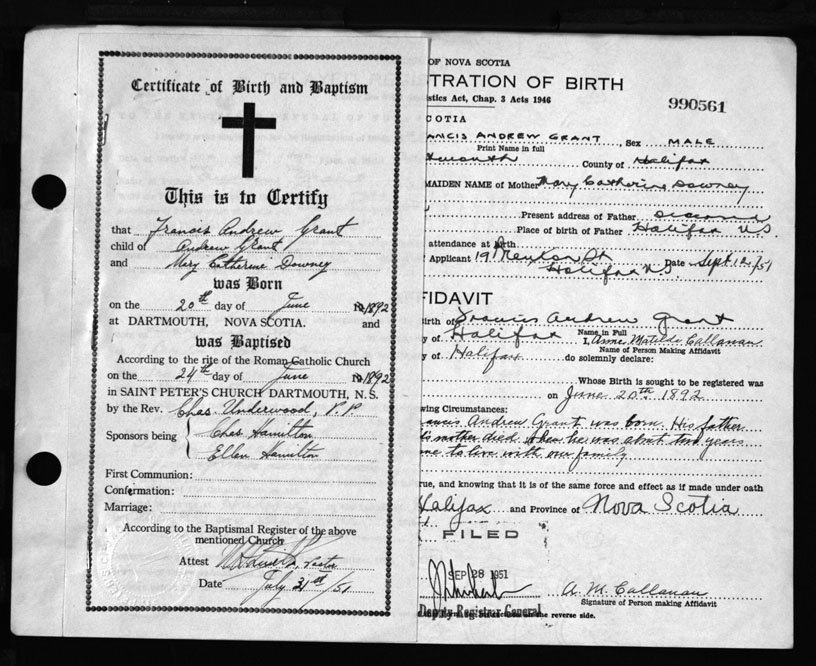 Certificate of Birth and Baptism
This is to Certify
that Francis Andrew Grant
child of Andrew Grant
and Mary Catherine Downey
was Born
on the 20th day of June 1892
at DARTMOUTH, NOVA SCOTIA. and
was Baptised
According to the rite of the Roman Catholic Church
on the 24th day of June 1892
in SAINT PETER'S CHURCH DARTMOUTH, N. S.
by the Rev. Chas. Underwood, P. P.
Sponsors being Chas Hamilton
Ellen Hamilton
First Communion:
Confirmation:
Marriage:
According to the Baptismal Register of the above
mentioned Church
Attest Pastor
Date July 31st/51
OF NOVA SCOTIA
TRATION OF BIRTH
istics Act, Chap. 3 Acts 1946
990561
SCOTIA
ANCIS ANDREW GRANT, Sex MALE
Print Name in full
County of Halifax
MAIDEN NAME of Mother Mary Catherine Downey
Present address of Father deceased
Place of birth of Father Halifax N.S.
attendance at birth
Applicant 19 St Date Sept 12/51
Halifax N.S.
FIDAVIT
irth of Francis Andrew Grant
Name in Full
of Halifax I, Anne Matilda Callanan
Name of Person Making Affidavit
y of Halifax do solemnly declare:
Whose Birth is sought to be registered was
on June 20th 1892
wing Circumstances:
ancis Andrew Grant was born. His father
mother died when he was about two years
me to live with our family
rue, and knowing that it is of the same force and effect as if made under oath
Halifax and Province of Nova Scotia
FILED
SEP 28 1951
A. M. Callanan
Signature of Person making Affidavit
Deputy Registrar General
on the reverse side.